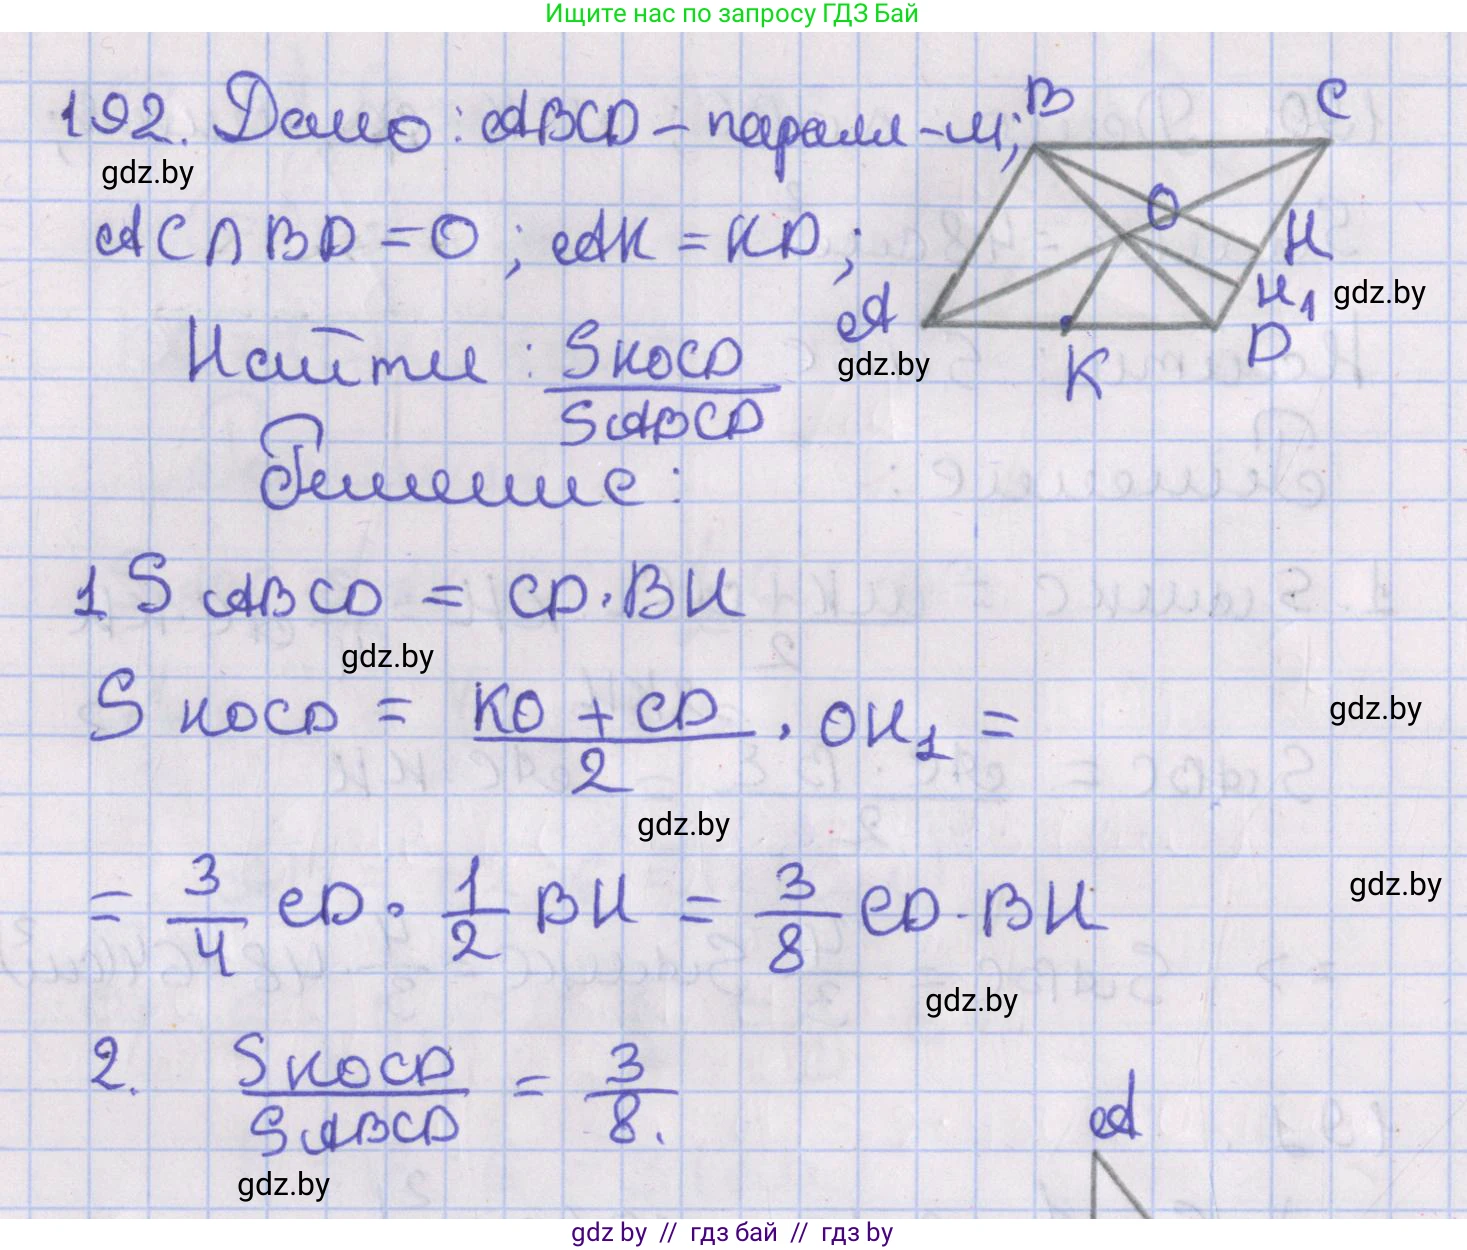 Ищите нас по запросу ГДЗ Бай
192. Дано: ABCD - паралл-м;
gdz.by
AC ∩ BD = O; AK = KD;
B
C
O
H
H₁
gdz.by
A
gdz.by
K
D
Найти: SKOCD / SABCD
Решение:
1 S ABCD = CD · BH
gdz.by
S KOCD = (KO + CD) / 2 · OH₁ =
gdz.by
gdz.by
= 3/4 CD · 1/2 BH = 3/8 CD · BH
gdz.by
gdz.by
2. SKOCD / SABCD = 3/8.
gdz.by
A
gdz.by // гдз бай // гдз by